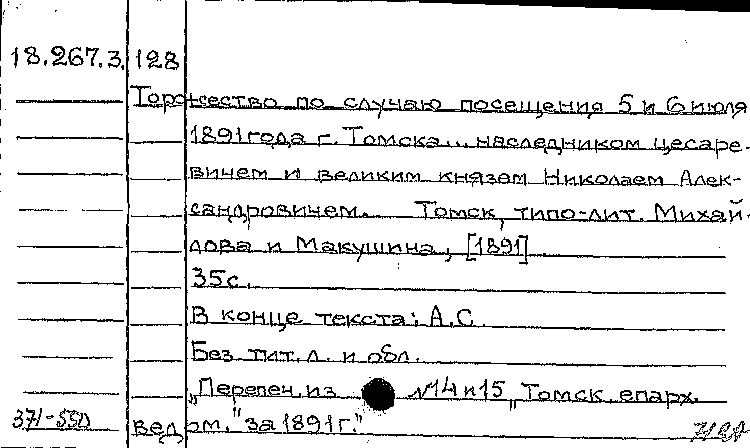 18.267.3. 128
Торжество по случаю посещения 5 и 6 июля
1891 года г. Томска... наследником цесаре-
вичем и великим князем Николаем Алек-
сандровичем. Томск, типо-лит. Михай-
лова и Макушина, [1891]
35 с.
В конце текста: А.С.
Без тит. л. и обл.
„Перепеч. из №14 и 15 „Томск. епарх.
371-55D вед ом." за 1891 г."